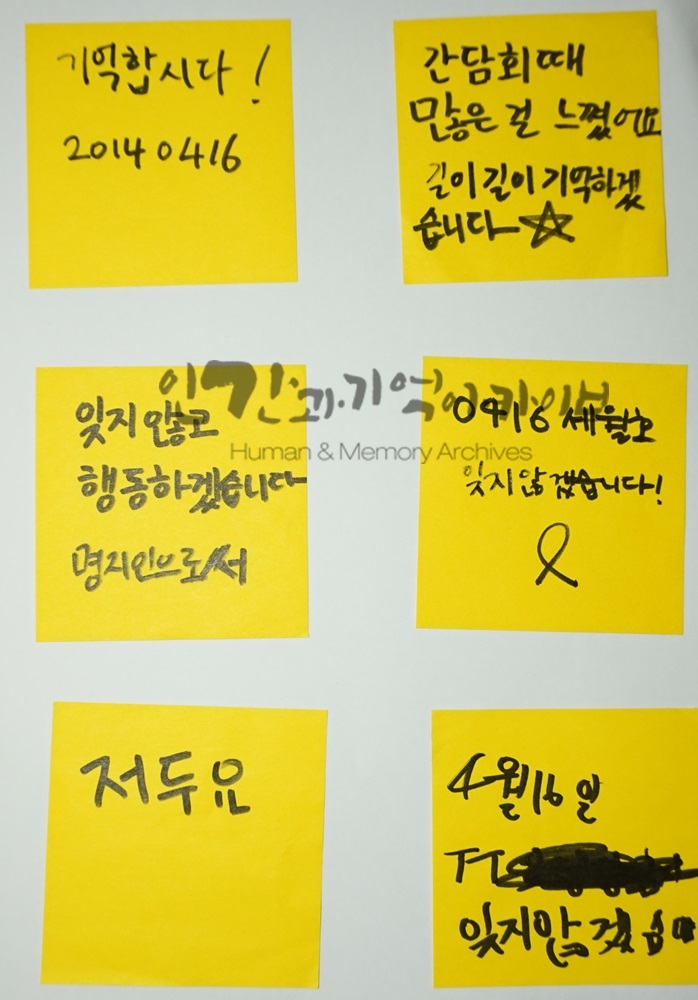 기억합시다!
20140416
간담회때
많은 걸 느꼈어요
길이길이 기억하겠
습니다
잊지 않고
행동하겠습니다
명지인으로서
0416 세월호
잊지 않겠습니다!
이간과기억아카이브
Human & Memory Archives
저두요
4월16일
TT
잊지않겠습